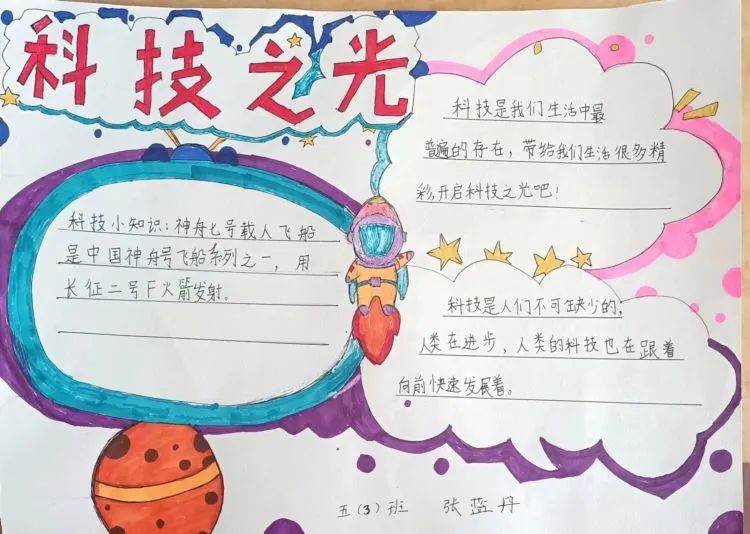 科技之光
科技小知识：神舟七号载人飞船
是中国神舟号飞船系列之一，用
长征二号F火箭发射。
科技是我们生活中最
普遍的存在，带给我们生活很多精
彩，开启科技之光吧！
科技是人们不可缺少的，
人类在进步，人类的科技也在跟着
向前快速发展着。
五（3）班 张蓝丹